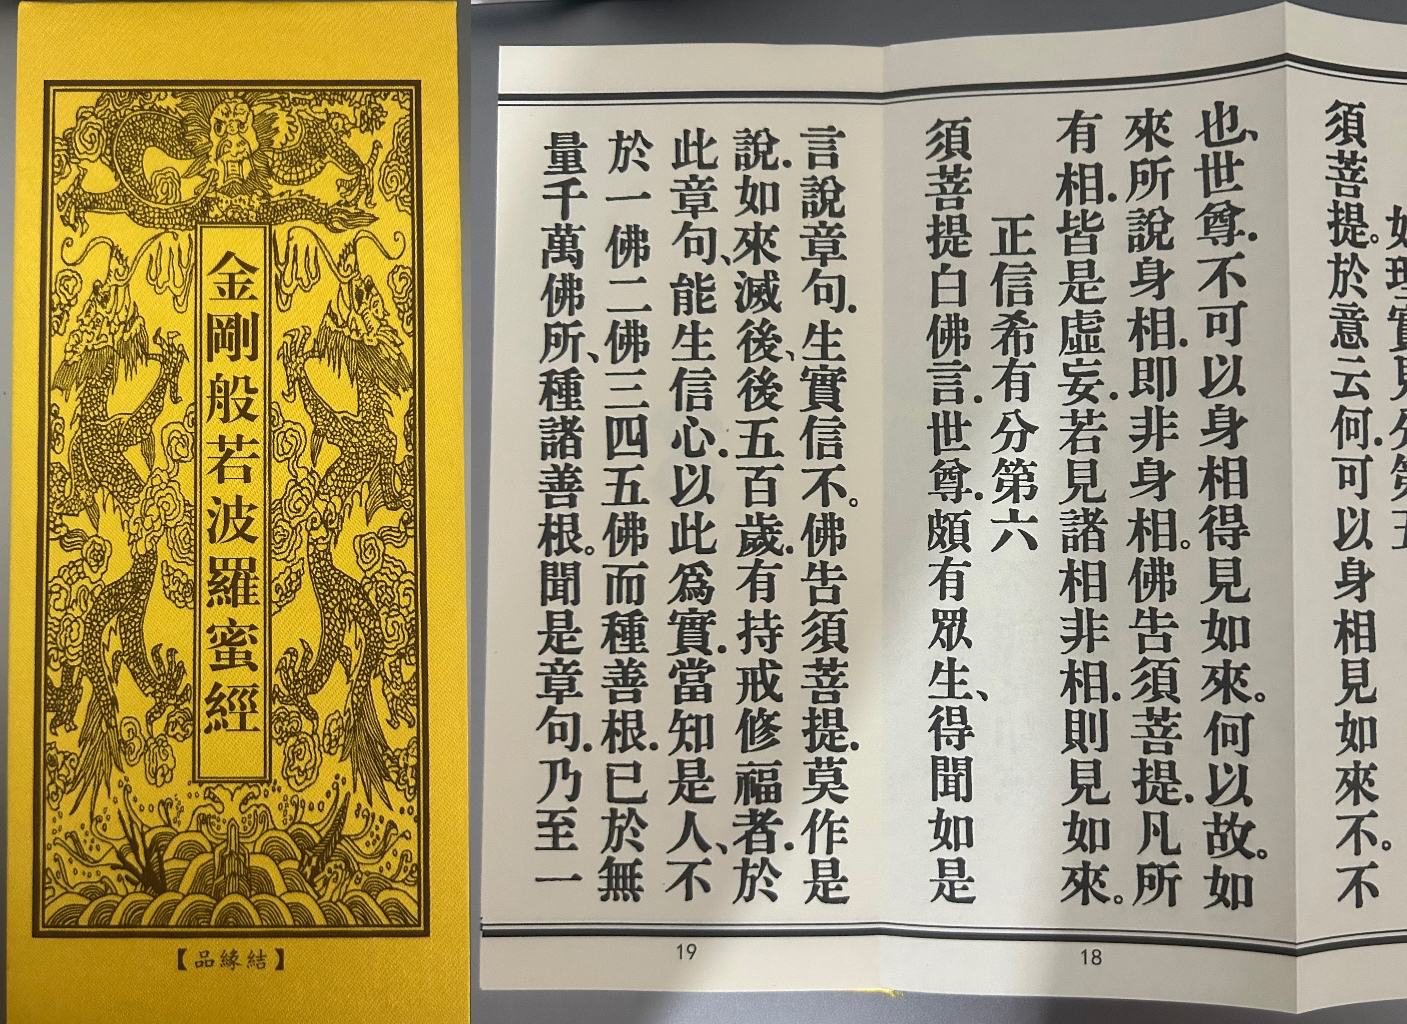 金剛般若波羅蜜經
【結緣品】
如理實見分第五
須菩提。於意云何.可以身相見如來不。不
也、世尊.不可以身相得見如來。何以故。如
來所說身相.即非身相。佛告須菩提.凡所
有相.皆是虛妄.若見諸相非相.則見如來。
正信希有分第六
須菩提白佛言.世尊.頗有眾生、得聞如是
18
言說章句.生實信不。佛告須菩提.莫作是
說.如來滅後、後五百歲.有持戒修福者.於
此章句、能生信心.以此爲實.當知是人、不
於一佛二佛三四五佛而種善根.已於無
量千萬佛所、種諸善根。聞是章句.乃至一
19